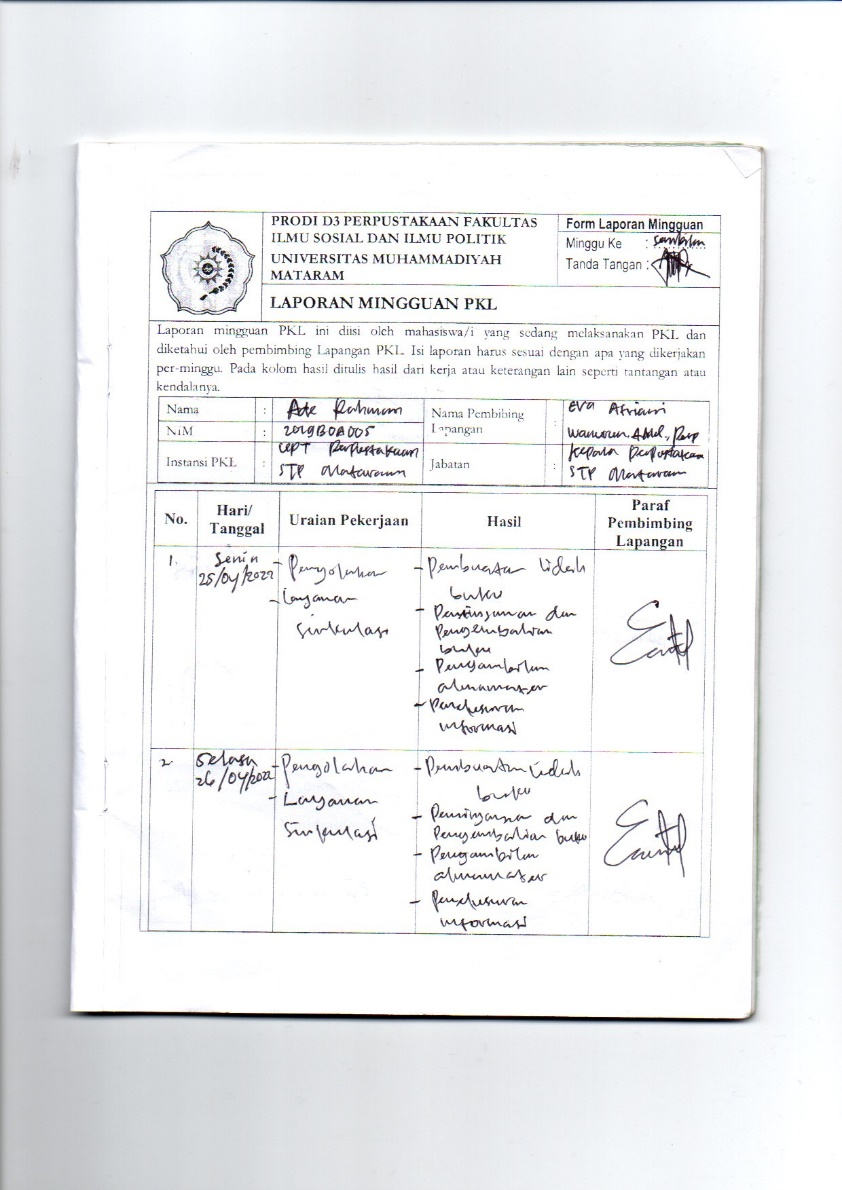 PRODI D3 PERPUSTAKAAN FAKULTAS
ILMU SOSIAL DAN ILMU POLITIK
UNIVERSITAS MUHAMMADIYAH
MATARAM
LAPORAN MINGGUAN PKL
Form Laporan Mingguan
Minggu Ke : Sembilan
Tanda Tangan :
Laporan mingguan PKL ini diisi oleh mahasiswa/i yang sedang melaksanakan PKL dan
diketahui oleh pembimbing Lapangan PKL. Isi laporan harus sesuai dengan apa yang dikerjakan
per-minggu. Pada kolom hasil ditulis hasil dari kerja atau keterangan lain seperti tantangan atau
kendalanya.
Nama : Ade Rahman
NIM : 2019B0A005
Instansi PKL : UPT Perpustakaan
STP Mataram
Nama Pembibing
Lapangan : Eva Afriani
Amd, Perp
Jabatan : Kepala Perpustakaan
STP Mataram
No. Hari/ Tanggal Uraian Pekerjaan Hasil Paraf Pembimbing Lapangan
1. Senin
25/04/2022
- Pengolahan
- Layanan
Sirkulasi
- Pembuatan lidah
buku
- Peminjaman dan
Pengembalian
buku
- Pengambilan
almamater
- Penelusuran
informasi
2 Selasa
26/04/2022
- Pengolahan
- Layanan
Sirkulasi
- Pembuatan lidah
buku
- Peminjaman dan
Pengembalian buku
- Pengambilan
almamater
- Penelusuran
informasi